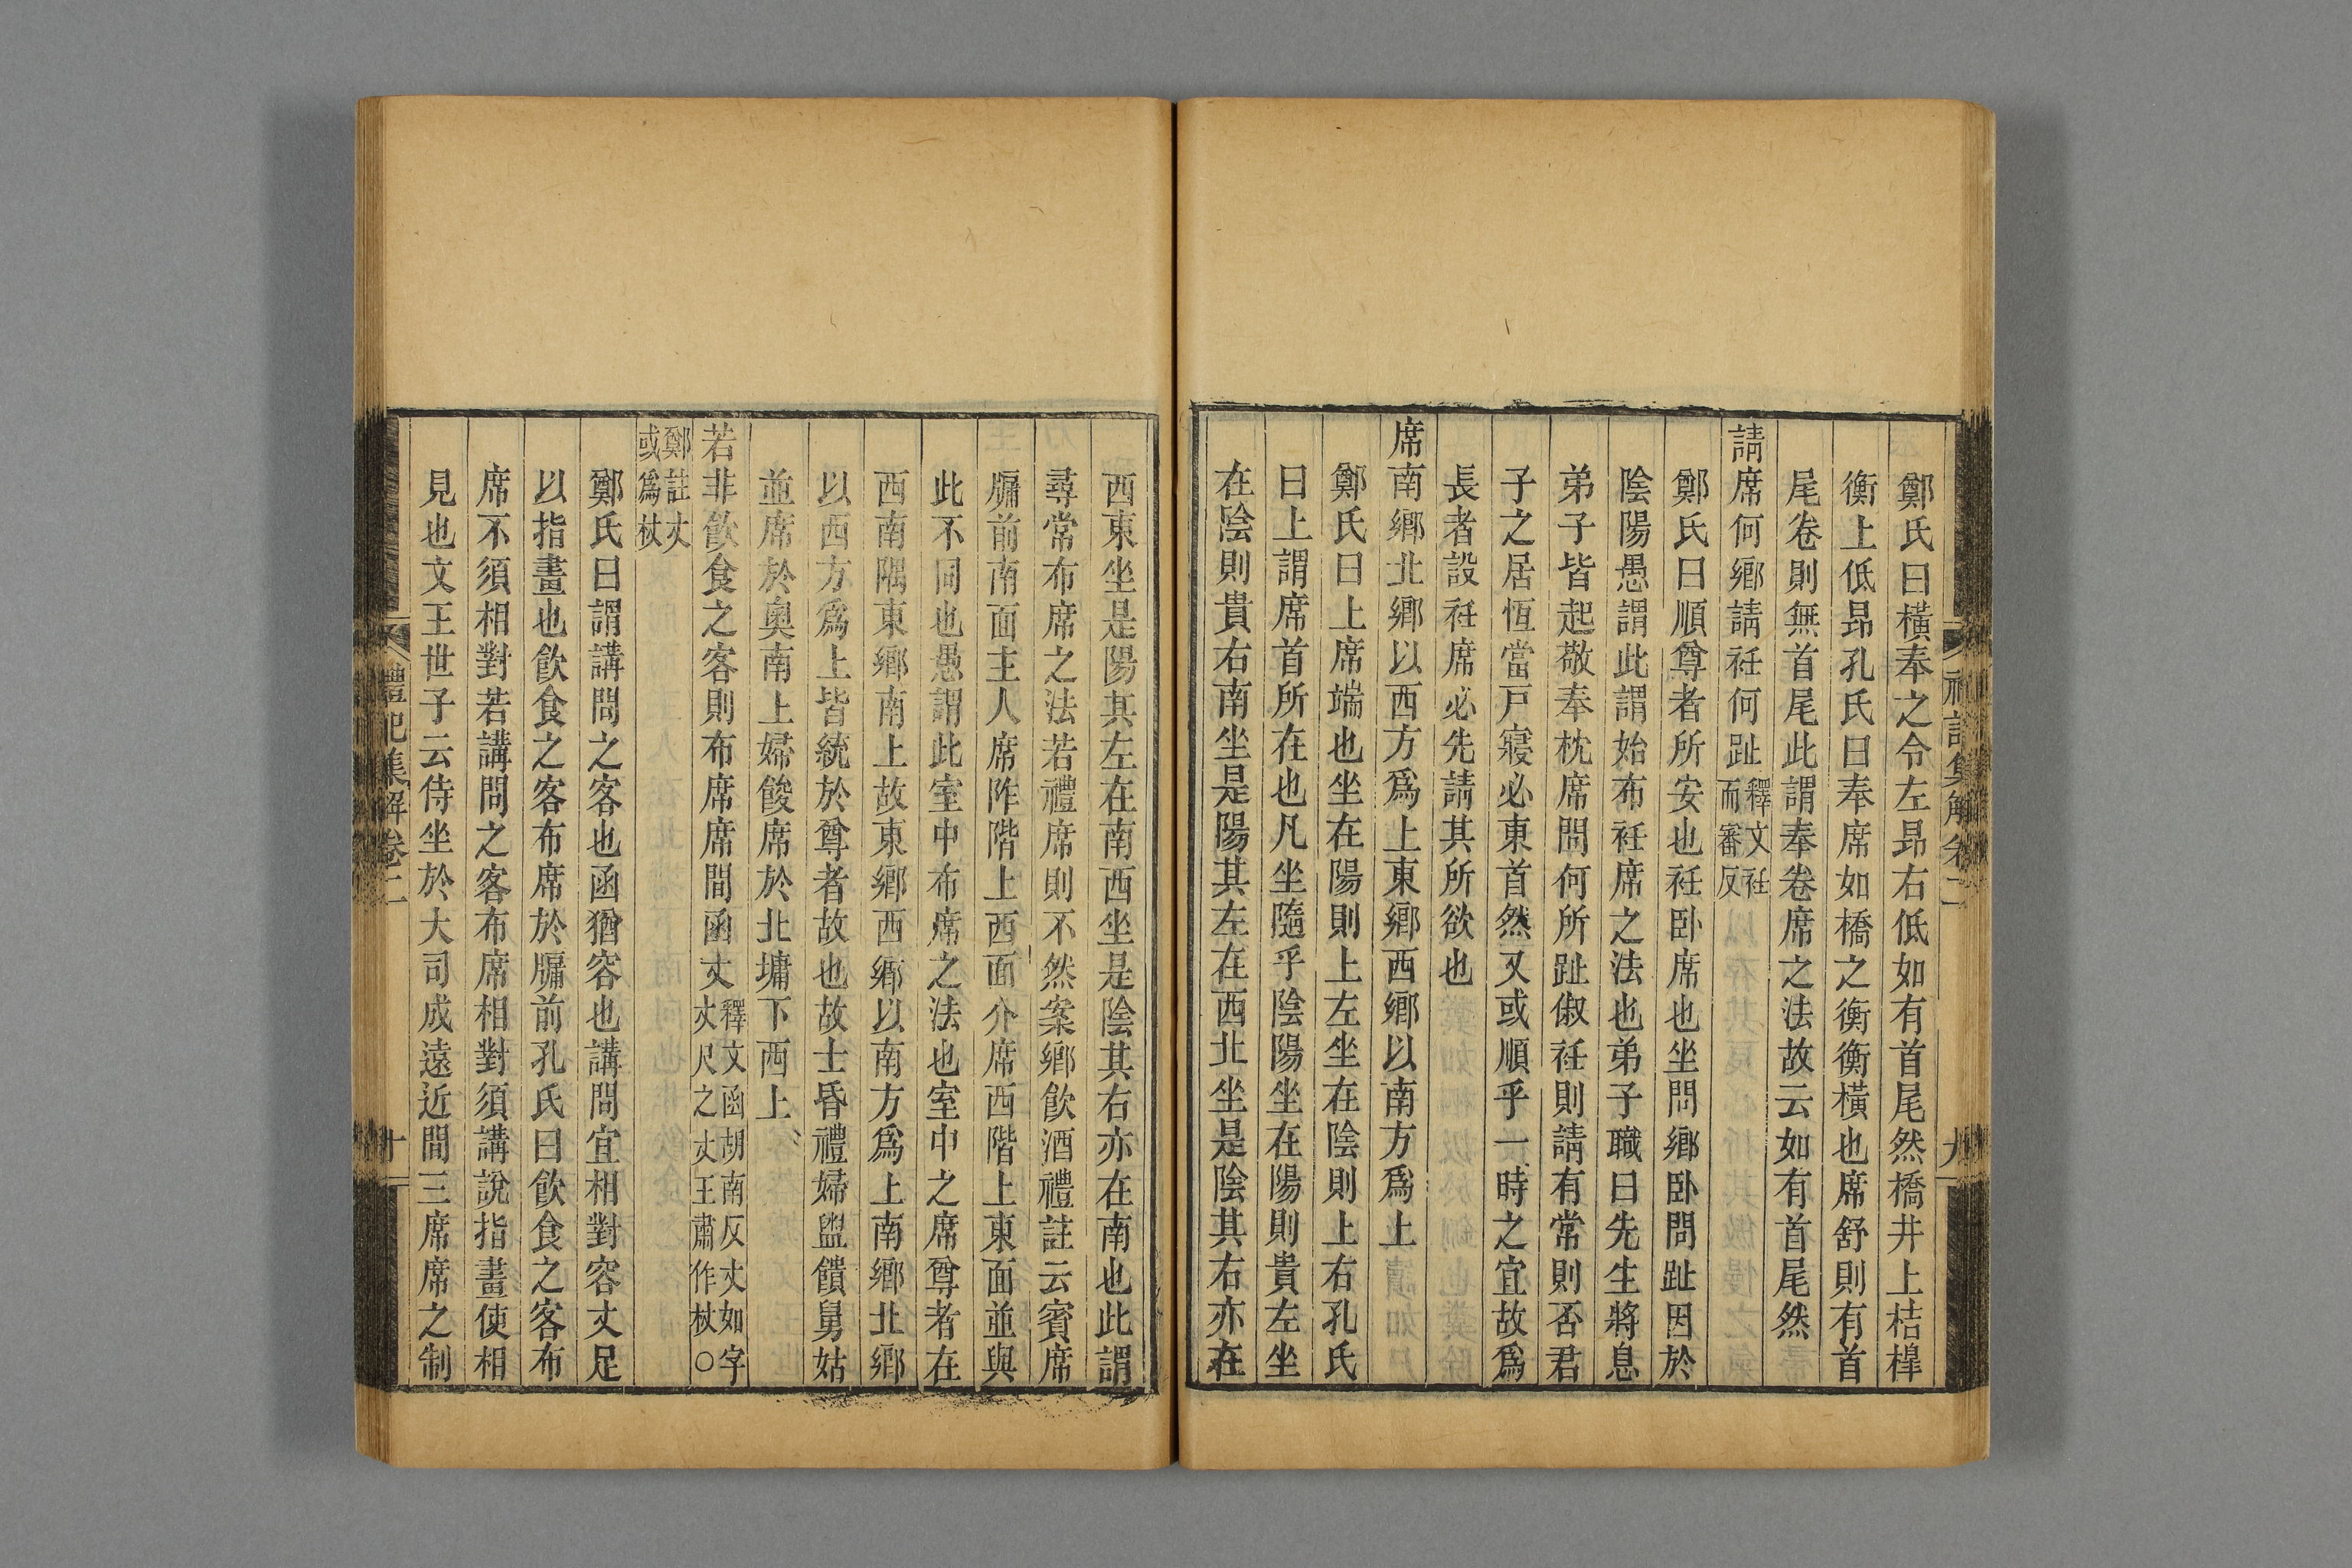 鄭氏曰橫奉之令左昂右低如有首尾然橋井上桔槹
衡上低昂孔氏曰奉席如橋之衡衡橫也席舒則有首
尾卷則無首尾此謂奉卷席之法故云如有首尾然
請席何鄉請衽何趾釋文衽而審反
鄭氏曰順尊者所安也衽卧席也坐問鄉卧問趾因於
陰陽愚謂此謂始布衽席之法也弟子職曰先生將息
弟子皆起敬奉枕席問何所趾俶衽則請有常則否君
子之居恆當戸寢必東首然又或順乎一時之宜故爲
長者設衽席必先請其所欲也
席南鄉北鄉以西方爲上東鄉西鄉以南方爲上
鄭氏曰上席端也坐在陽則上左坐在陰則上右孔氏
曰上謂席首所在也凡坐隨乎陰陽坐在陽則貴左坐
在陰則貴右南坐是陽其左在西北坐是陰其右亦在
西東坐是陽其左在南西坐是陰其右亦在南也此謂
尋常布席之法若禮席則不然案鄉飲酒禮註云賓席
牖前南面主人席阼階上西面介席西階上東面並與
此不同也愚謂此室中布席之法也室中之席尊者在
西南隅東鄉南上故東鄉西鄉以南方爲上南鄉北鄉
以西方爲上皆統於尊者故也故士昏禮婦盥饋舅姑
並席於奧南上婦餕席於北墉下西上
若非飲食之客則布席席間函丈釋文函胡南反丈如字丈尺之丈王肅作杖○
鄭註丈或爲杖
鄭氏曰謂講問之客也函猶容也講問宜相對容丈足
以指畫也飲食之客布席於牖前孔氏曰飲食之客布
席不須相對若講問之客布席相對須講說指畫使相
見也文王世子云侍坐於大司成遠近間三席席之制
禮記集解卷二
九
禮記集解卷二
十